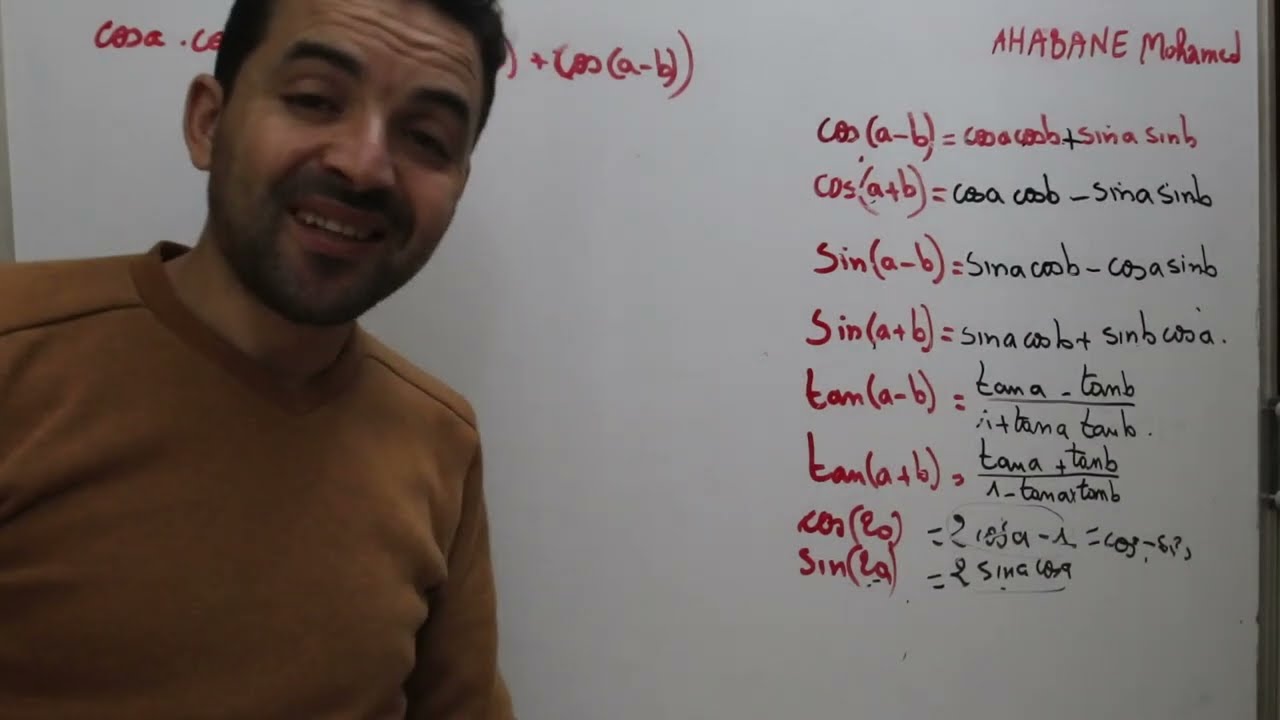 cosa . co ) + cos(a-b))
AHABANE Mohamed
cos(a-b) = cosa cosb + sina sinb
cos(a+b) = cosa cosb - sina sinb
Sin(a-b) = sina cosb - cosa sinb
Sin(a+b) = sina cosb + sinb cosa.
tan(a-b) = tana - tanb
1+tana tanb.
tan(a+b) = tana + tanb
1-tanaxtanb
cos(2a) = 2cos²a-1 = cos²-si²
sin(2a) = 2 sina cosa